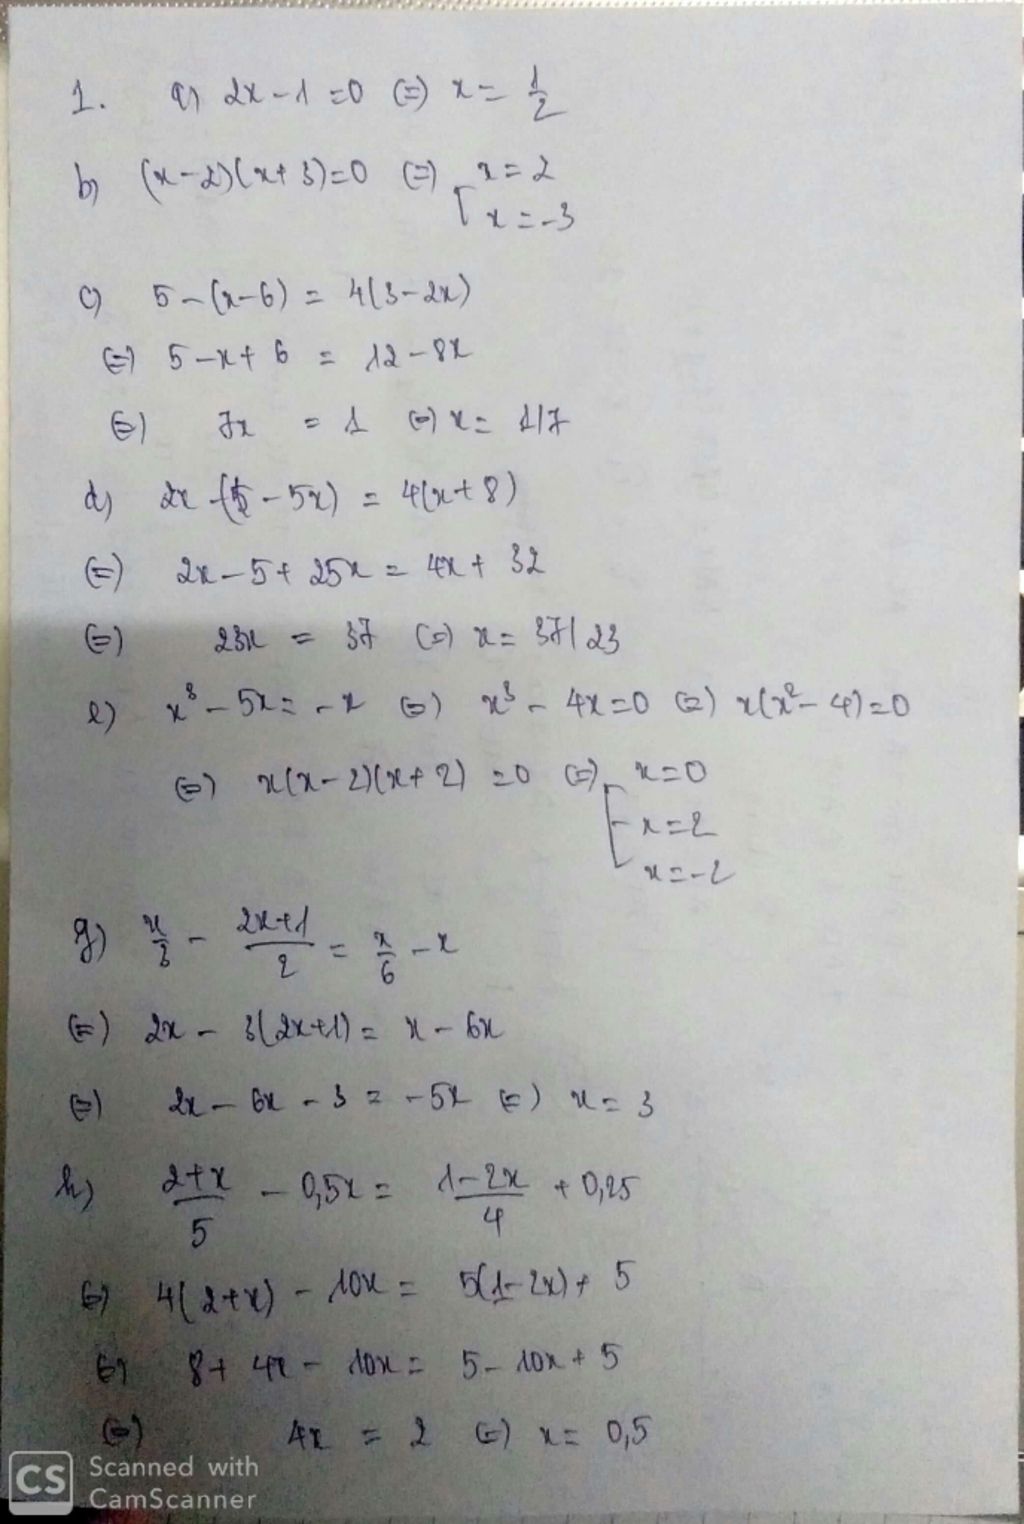 1. a) 2x - 1 = 0 (=) x = 1/2
b) (x-2)(x+3)=0 (=) [ x = 2
x = -3
c) 5 - (x-6) = 4(3-2x)
(=) 5 - x + 6 = 12 - 8x
(=) 7x = 1 (=) x = 1/7
d) 2x - ( - 5x) = 4(x+8)
(=) 2x - 5 + 25x = 4x + 32
(=) 23x = 37 (=) x = 37/23
e) x³ - 5x = -x (=) x³ - 4x = 0 (=) x(x² - 4) = 0
(=) x(x-2)(x+2) = 0 (=) [ x = 0
x = 2
x = -2
g) x/3 - (2x+1)/2 = x/6 - x
(=) 2x - 3(2x+1) = x - 6x
(=) 2x - 6x - 3 = -5x (=) x = 3
h) (2+x)/5 - 0,5x = (1-2x)/4 + 0,25
(=) 4(2+x) - 10x = 5(1-2x) + 5
(=) 8 + 4x - 10x = 5 - 10x + 5
(=) 4x = 2 (=) x = 0,5
CS Scanned with
CamScanner